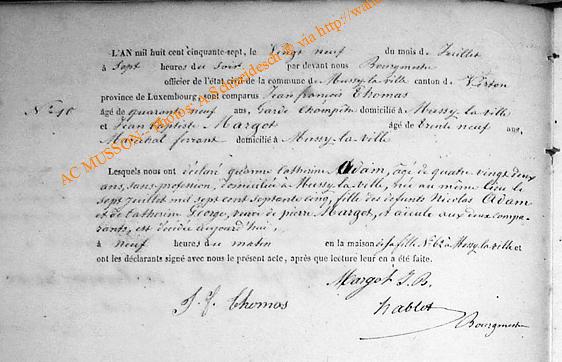 L'AN mil huit cent cinquante-sept, le Vingt neuf du mois de Juillet
à Sept heures du Soir par devant nous Bourgmestre
officier de l'état civil de la commune de Mussy-la-ville canton de Virton
province de Luxembourg, sont comparus Jean françois Thomas
N° 40 âgé de quarante neuf ans, Garde Champêtre domicilié à Mussy-la-ville
et Jean Baptiste Margot âgé de trente neuf ans,
Maréchal ferrant domicilié à Mussy-la-ville
Lesquels nous ont déclaré qu'anne Catherine Adam, âgée de quatre vingt deux
ans, sans profession, domiciliée à Mussy-la-ville, née au même lieu le
sept Juillet mil sept cent septante cinq, fille des défunts Nicolas Adam
et de Catherine George, veuve de pierre Margot, et aïeule aux deux compa-
rants, est décédée aujourd'hui,
à neuf heures du matin en la maison de sa fille N° 62 à Mussy-la-ville et
ont les déclarants signé avec nous le présent acte, après que lecture leur en a été faite.
Margot J.B.
J. f. Thomas
hablot
Bourgmestre
AC MUSSON - Photos: A Schmideschi © via http://wa